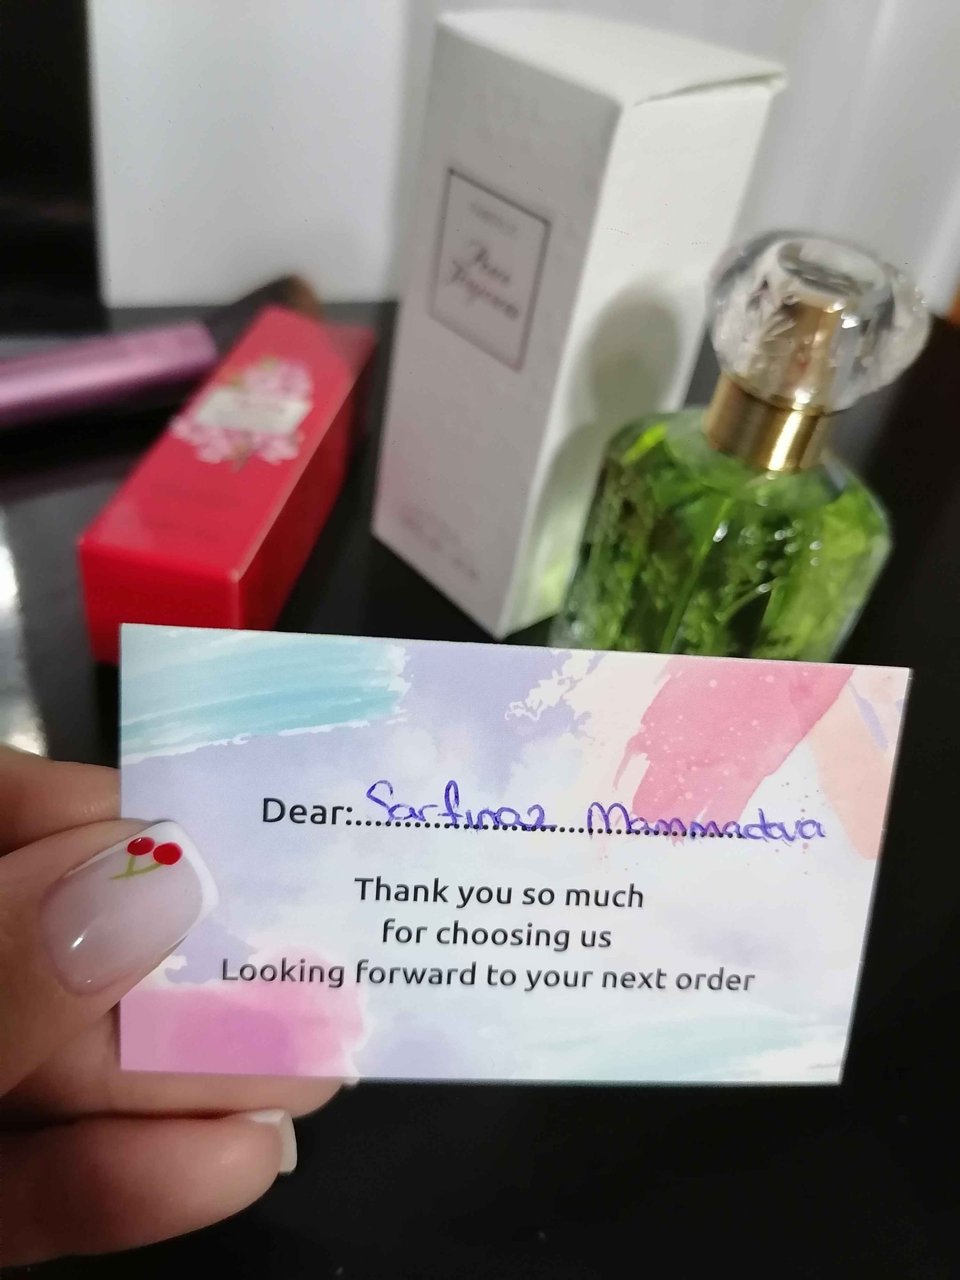 Dear: Sarfinaz Mammadova
Thank you so much
for choosing us
Looking forward to your next order